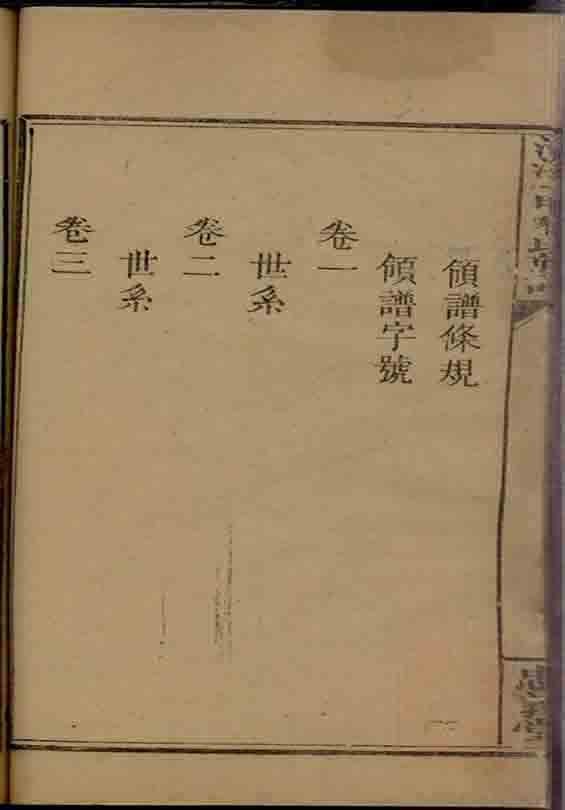 領譜條規
領譜字號
卷一
世系
卷二
世系
卷三